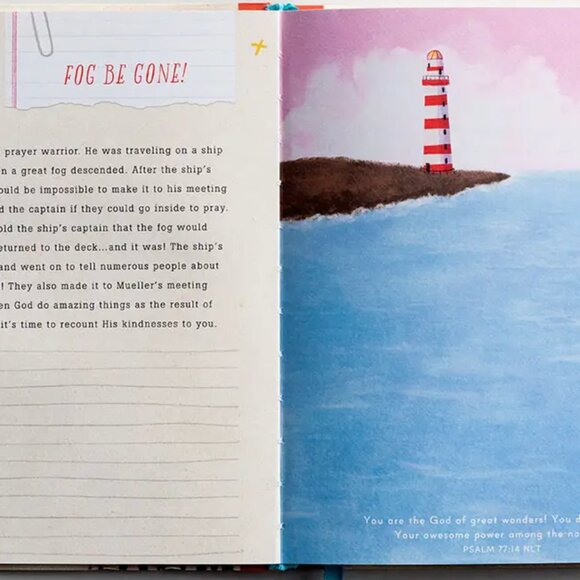 FOG BE GONE!
prayer warrior. He was traveling on a ship
n a great fog descended. After the ship's
ould be impossible to make it to his meeting
d the captain if they could go inside to pray.
old the ship's captain that the fog would
eturned to the deck...and it was! The ship's
and went on to tell numerous people about
! They also made it to Mueller's meeting
en God do amazing things as the result of
it's time to recount His kindnesses to you.
You are the God of great wonders! You d
Your awesome power among the na
PSALM 77:14 NLT